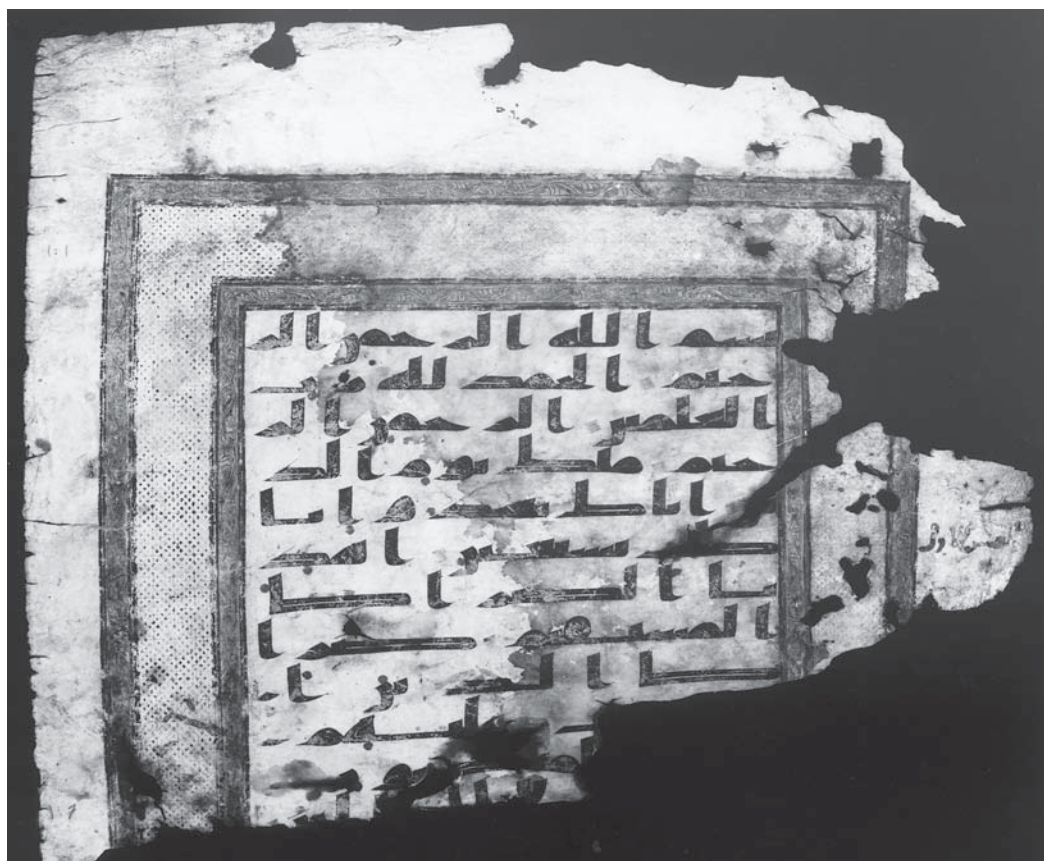 بسم الله الرحمن الر
حيم الحمد لله رب
العلمين الرحمن الر
حيم ملك يوم الد
اياك نعبد و ايا
ك نستعين اهد
نا الصراط
المستقيم صرا
ط الذين انـ
عليهم